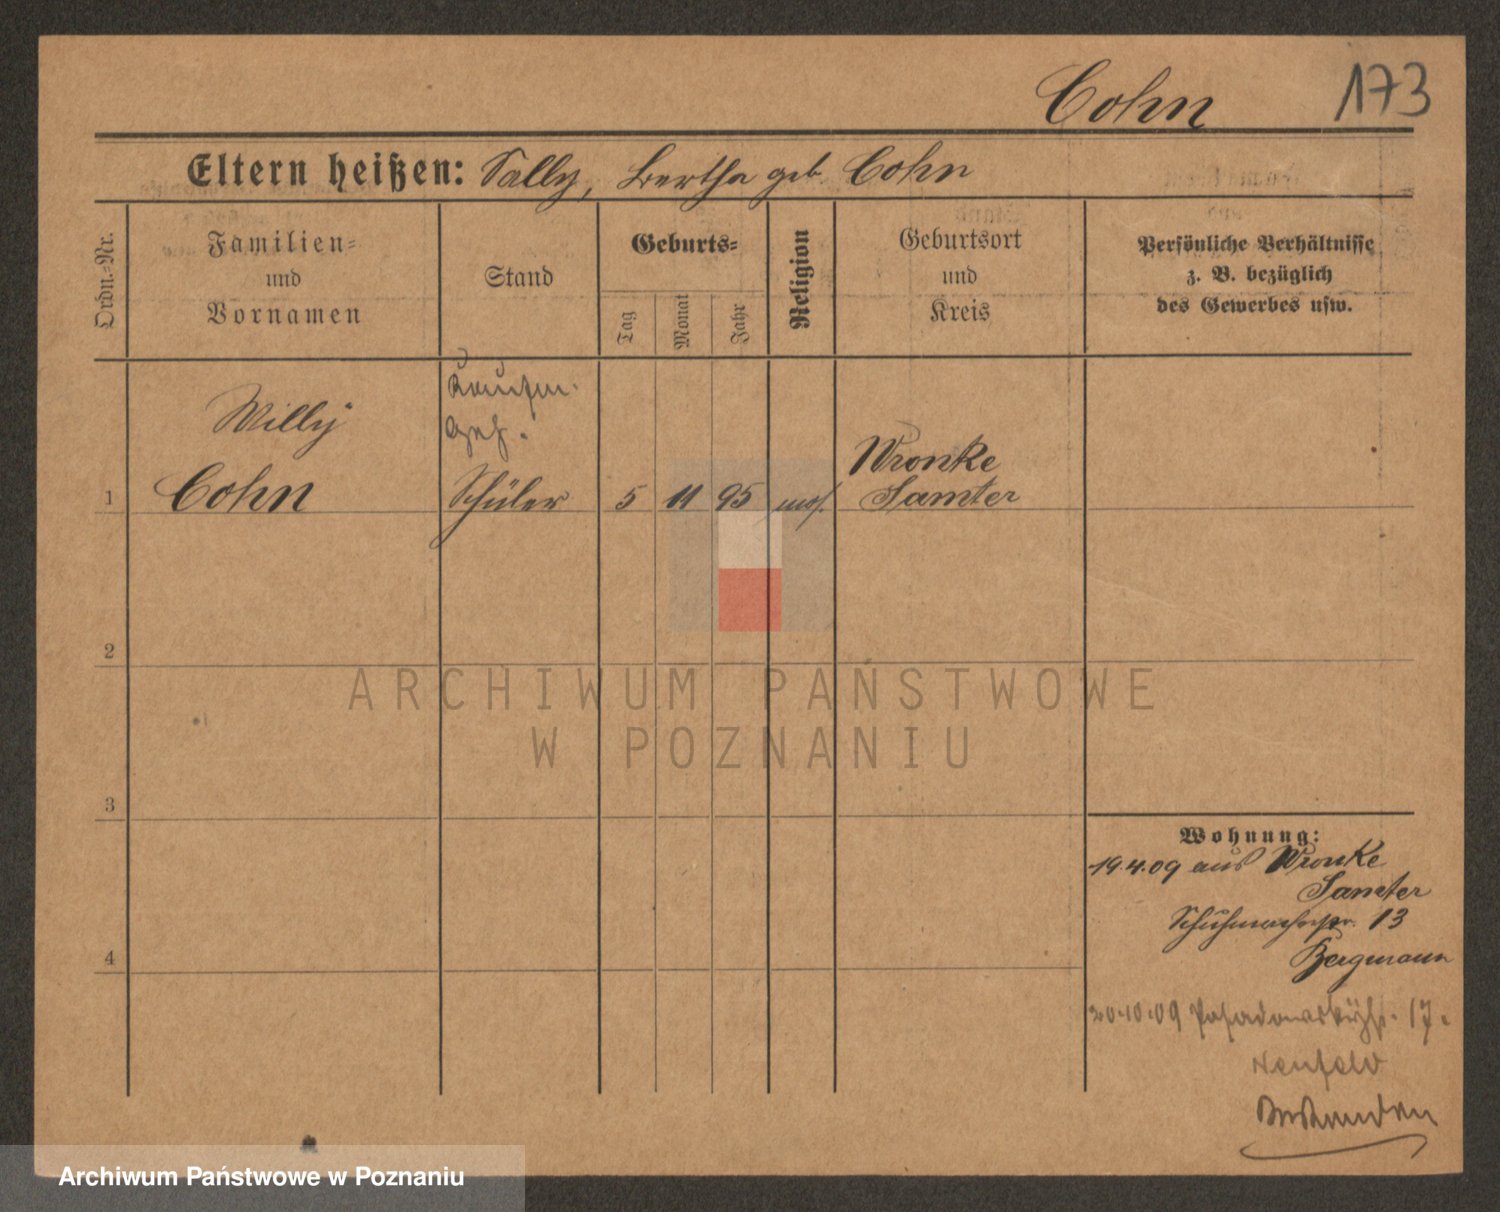 Cohn 173
Eltern heißen: Sally, Bertha geb. Cohn
Ordn.=Nr.
Familien=
und
Vornamen
Stand
Geburts=
Tag
Monat
Jahr
Religion
Geburtsort
und
Kreis
Persönliche Verhältnisse
z. B. bezüglich
des Gewerbes usw.
Kaufm.
Willy
Wronke
1 Cohn Schüler 5 11 95 mos. Samter
2
ARCHIWUM PAŃSTWOWE
W POZNANIU
3
Wohnung:
19.4.09 aus Wronke
Samter
Schuhmacherstr. 13
Bergmann
4
20.10.09 Posadowskystr. 17.
Neufeld
Archiwum Państwowe w Poznaniu